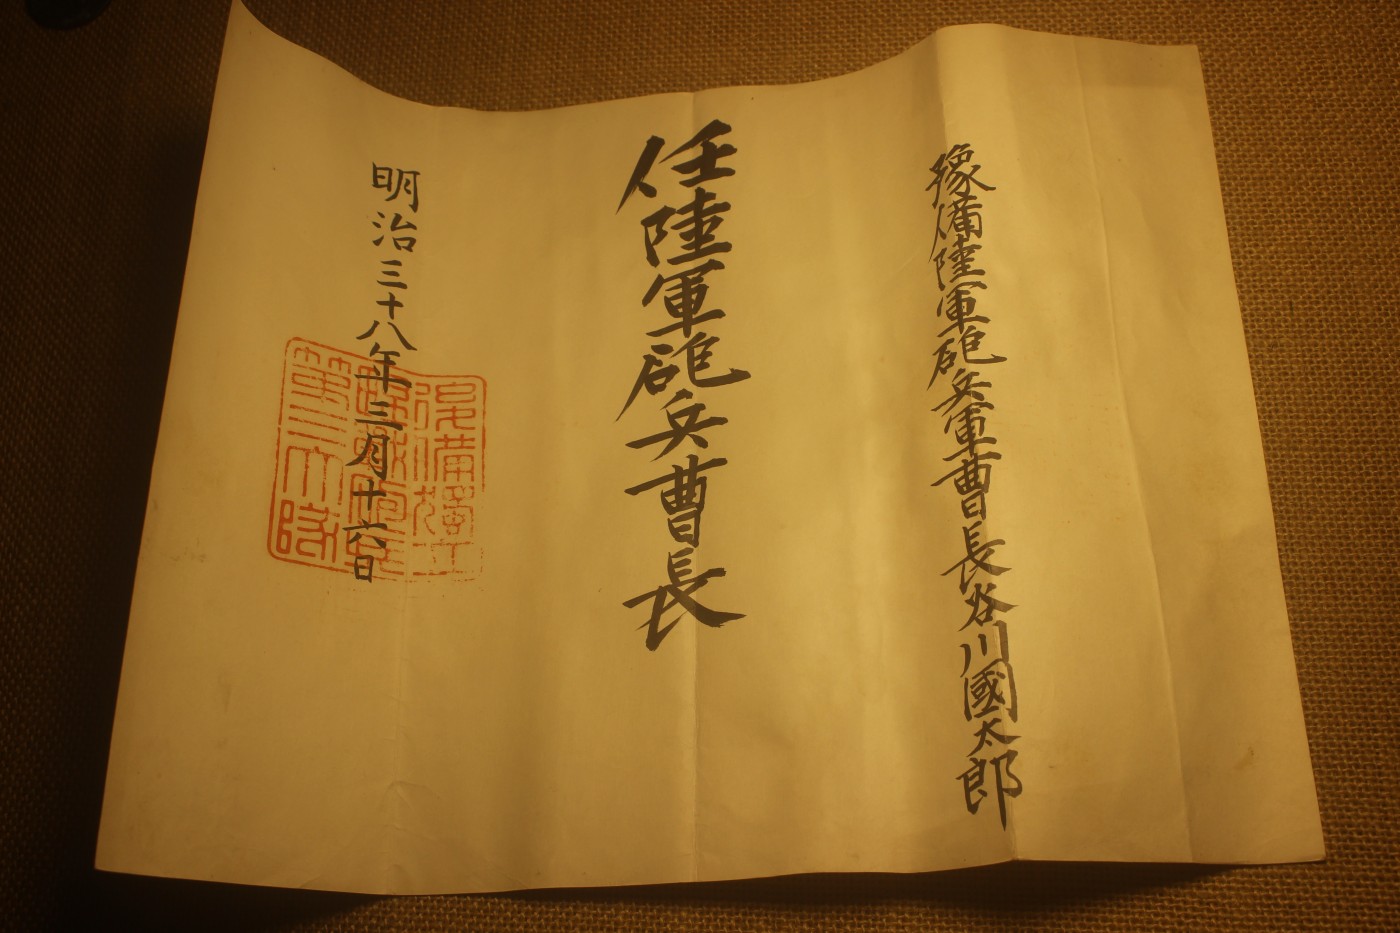 豫備陸軍砲兵軍曹長谷川國太郎
任陸軍砲兵曹長
明治三十八年三月十六日
後備獨立